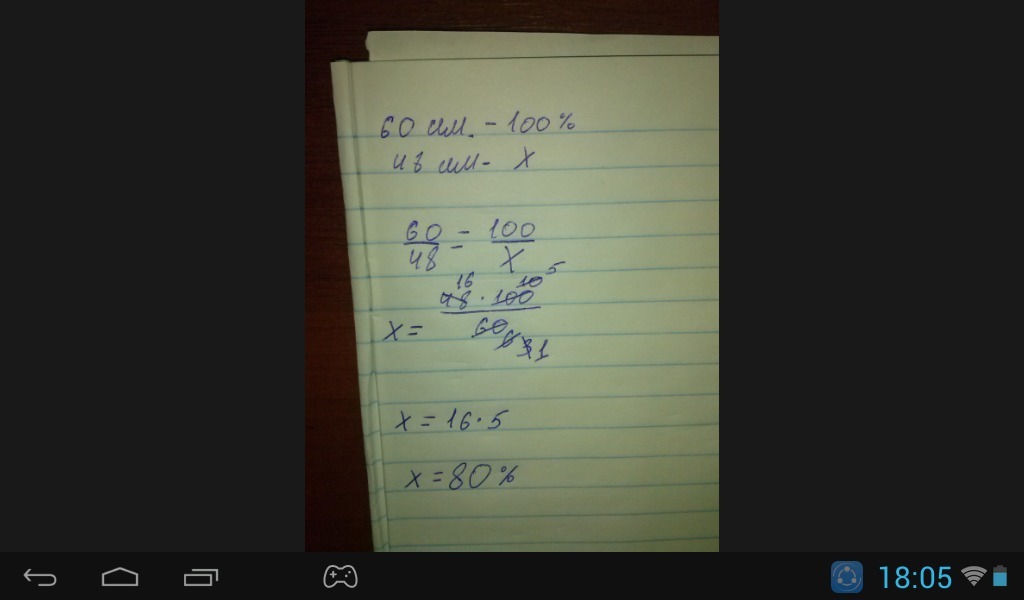 60 см. - 100%
48 см - X
60/48 = 100/X
16 10 5
X = 48 · 100 / 60
6 3 1
X = 16 · 5
X = 80%
18:05